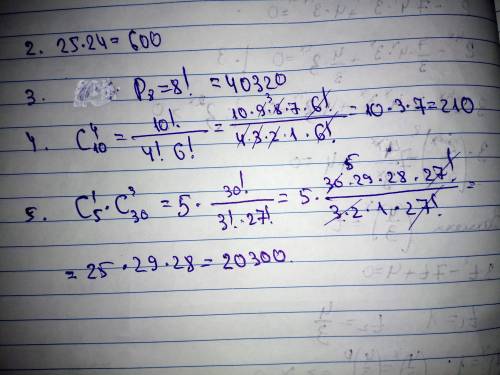 2. 25·24 = 600
3. P₈ = 8! = 40320
4. C₁₀⁴ = 10!/(4! 6!) = (10·9·8·7·6!)/(4·3·2·1·6!) = 10·3·7 = 210
5. C₅¹·C₃₀³ = 5·30!/(3!·27!) = 5·(30·29·28·27!)/(3·2·1·27!) =
= 25·29·28 = 20300.